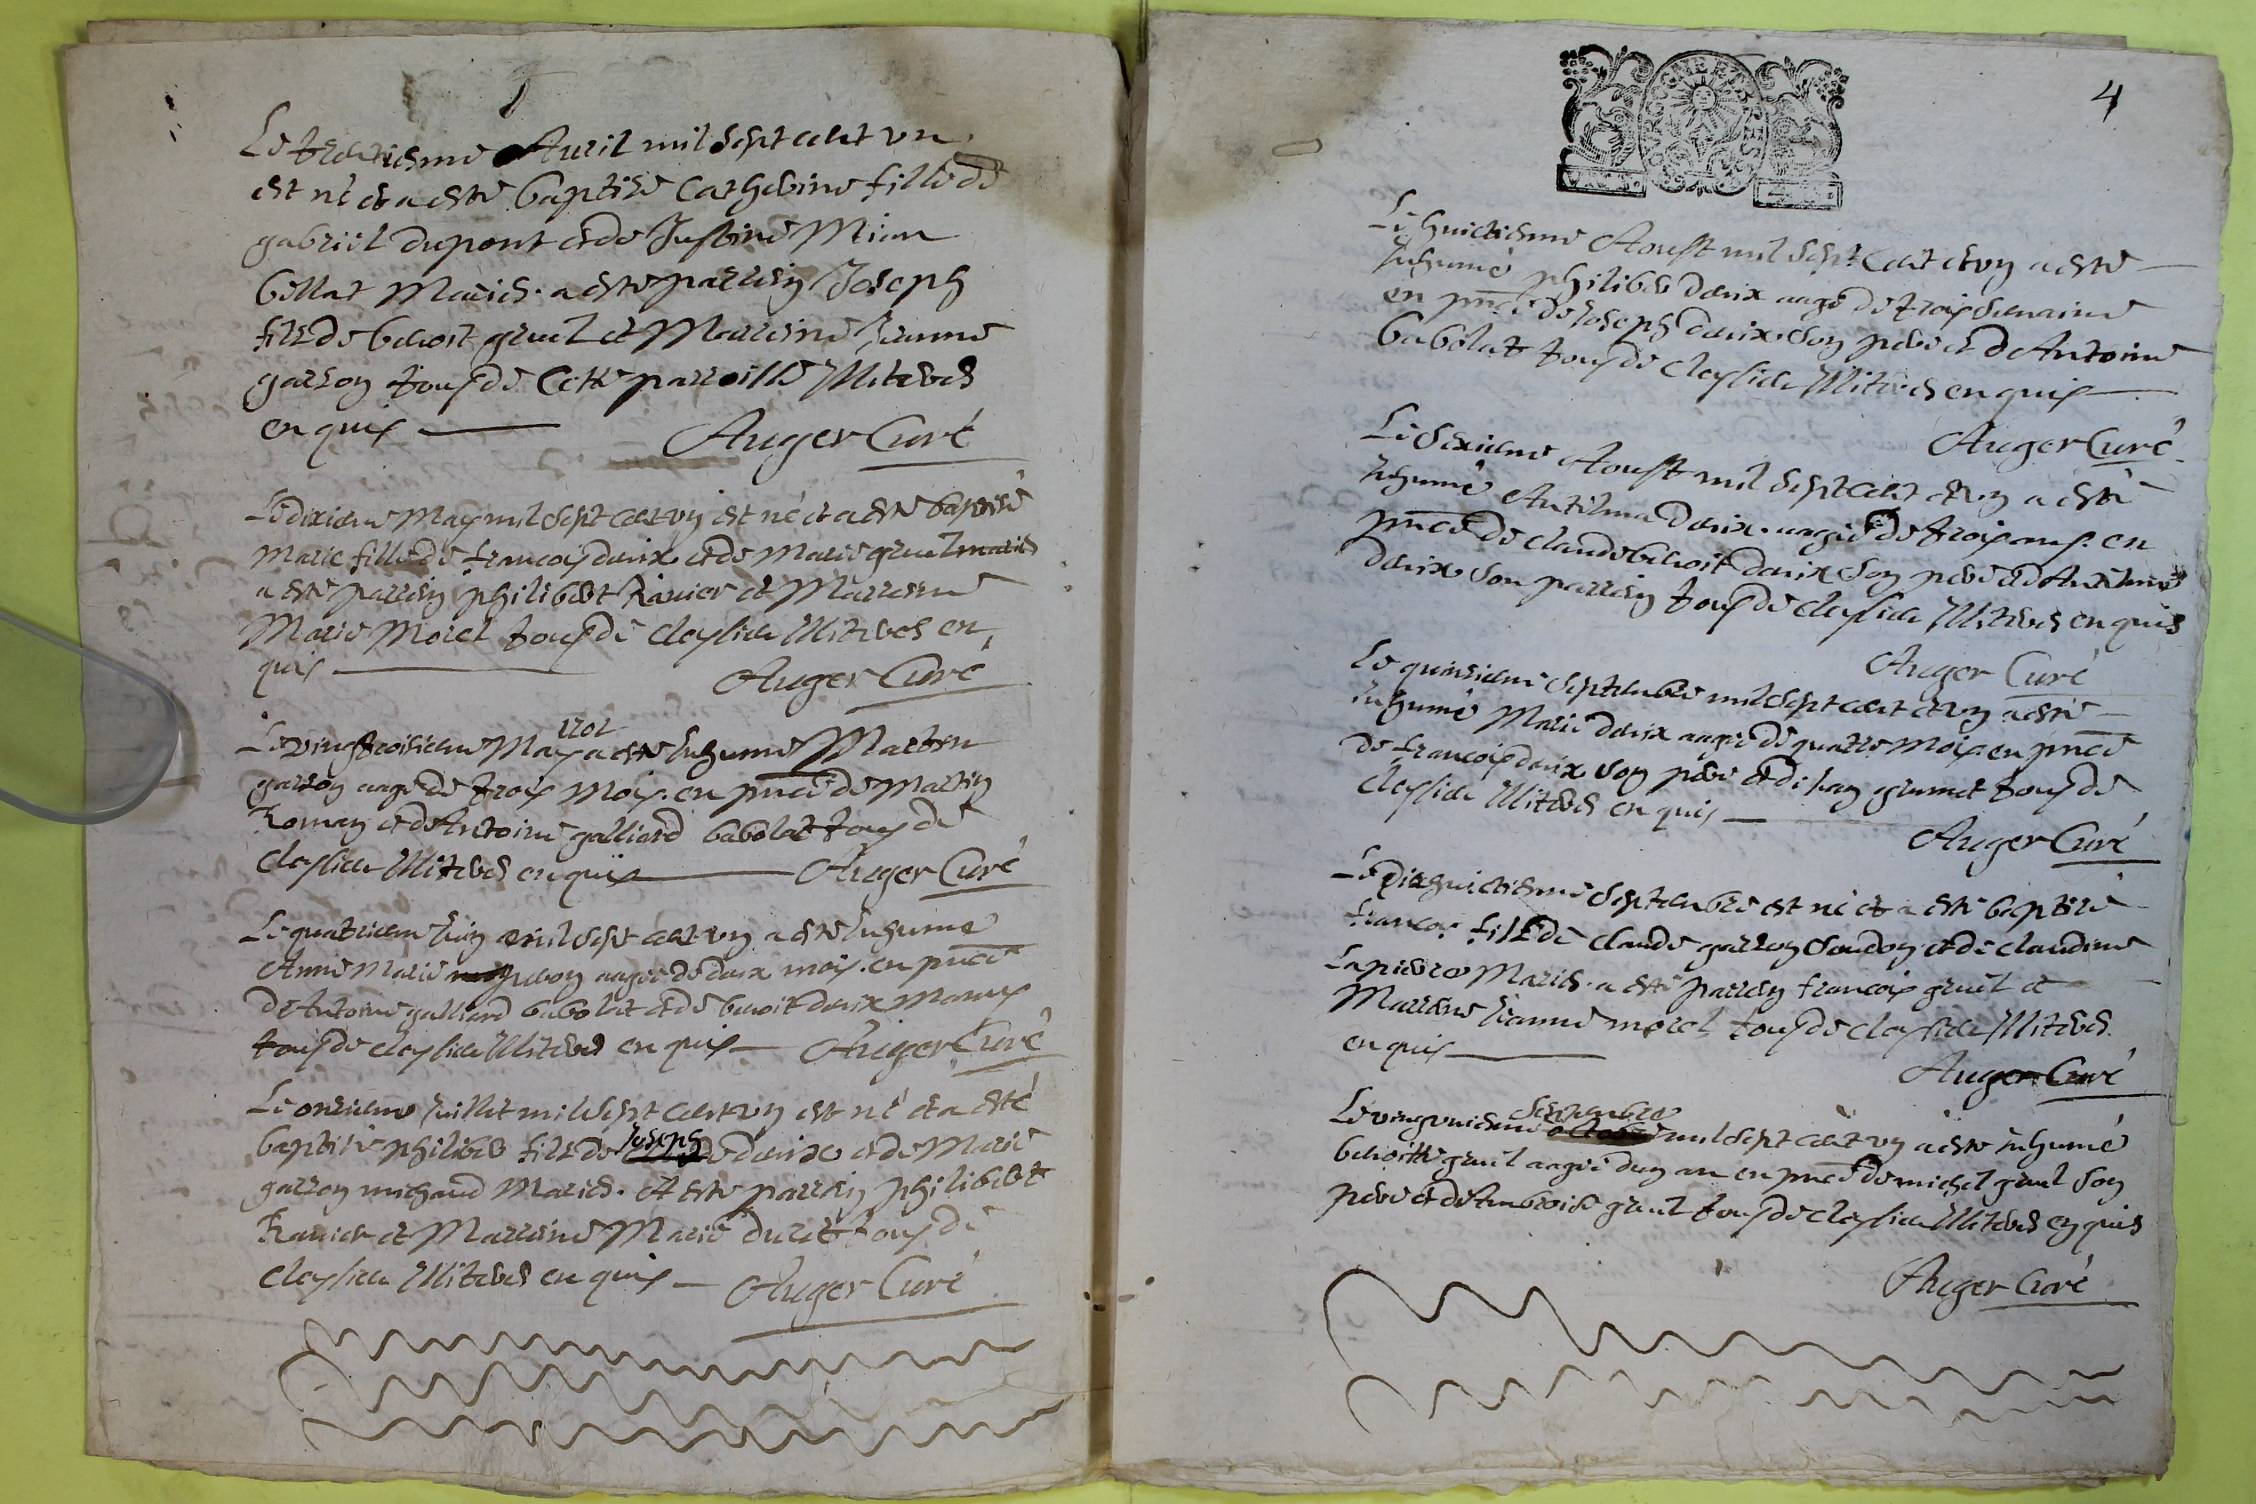 Le trentiesme Auril mil sept cent vn
est né et a esté baptisé Catherine fille de
gabriel dupont et de Justine Mion
billat Mariés. a esté parrein Joseph
fils de benoit gruel et Marreine Jeanne
garson tous de Cette parroisse Illiterés
enquis
Auger Curé
Le dixiem May mil sept cent vn est né et a esté baptisé
Marie fille de francois daix et de Marie gruel mariés
a esté parrein philibert Rauier et Marreine
Marie Morel tous de cleysieu Illiterés en
quis
Auger Curé
1701
Le vingtroisiem May a esté Inhumé Marten
garson aagé de trois Mois. en pnce de Martin
Roman et de Antoine galliard babolat tous de
Cleysieu Illiterés enquis Auger Curé
Le quatriem Juin mil sept cent vn a esté Inhumé
Anne Marie aagée de deux mois. en pnce
de Antoine galliard babolat et de benoit daix
tous de cleysieu Illiterés enquis Auger Curé
Le onsiem Juillet mil sept cent vn est né et a esté
Joseph
baptisé philiber fils de daix et de Marie
garson michaud Mariés. A esté parrein philibert
Rauier et Marreine Marie duret tous de
cleysieu Illiterés enquis Auger Curé
4
Le huictiesme Aoust mil sept Cent et vn a esté
Inhumé philiber daix aagé de trois semaine
en pnce de Joseph daix son pere et de Antoine
babolat tous de cleysieu Illiterés enquis
Auger Curé
Le Sexiem Aoust mil sept cent et vn a esté
Inhumé daix. aagée de trois ans. en
pnce de claude benoit daix son pere et de
daix son parrein tous de cleysieu Illiterés enquis
Auger Curé
Le quinsiem Septembre mil sept cent et vn a esté
Inhumé Marie daix aagée de quatre Mois. en pnce
de francois daix son pere et de Jean grumet tous de
Cleysieu Illiterés enquis
Auger Curé
Le dixhuictiesme Septembre est né et a esté baptisé
francois fils de claude garson et de claudine
Lapierre Mariés. a esté parrein francois gruel et
Marreine Jeanne morel tous de cleysieu Illiterés
enquis
Auger Curé
Septembre
Le mil sept cent vn a esté inhumé
benoitte gruel aagée dun an en pnce de michel gruel son
pere et de Ambroise gruel tous de cleysieu Illiterés enquis
Auger Curé